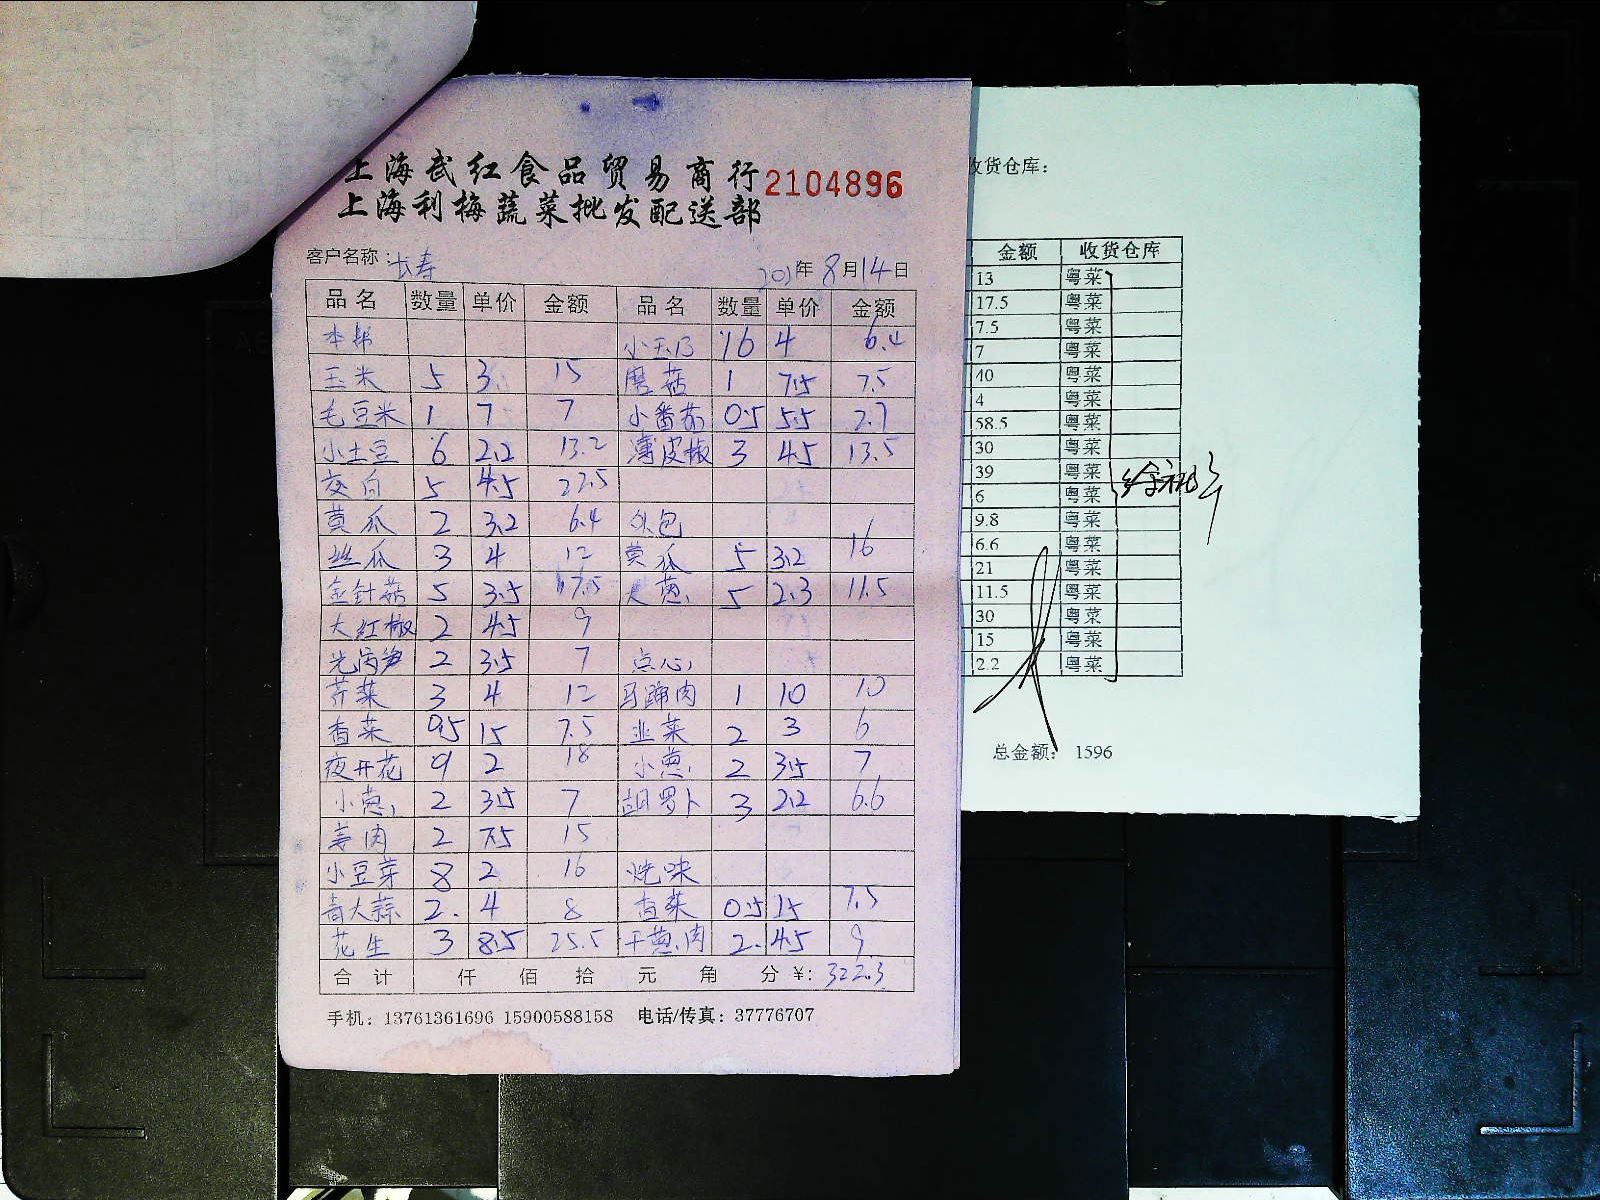 上海武红食品贸易商行 2104896
上海利梅蔬菜批发配送部
客户名称: 长寿 年 8 月 14 日
品名 数量 单价 金额 品名 数量 单价 金额
本帮 小玉 4 6.4
玉米 5 3 15 磨菇 1 7.5 7.5
毛豆米 1 7 7 小番茄 0.5 5.5 2.7
小土豆 6 2.2 13.2 薄皮椒 3 4.5 13.5
茭白 5 4.5 22.5
黄瓜 2 3.2 6.4 外包
丝瓜 3 4 12 黄瓜 5 3.2 16
金针菇 5 3.5 17.5 大葱 5 2.3 11.5
大红椒 2 4.5 9
光莴笋 2 3.5 7 点心
芹菜 3 4 12 马蹄肉 1 10 10
香菜 0.5 15 7.5 韭菜 2 3 6
夜开花 9 2 18 小葱 2 3.5 7
小葱 2 3.5 7 胡罗卜 3 2.2 6.6
姜肉 2 7.5 15
小豆芽 8 2 16 烧味
青大蒜 2. 4 8 香菜 0.5 15 7.5
花生 3 8.5 25.5 干葱肉 2. 4.5 9
合计 仟 佰 拾 元 角 分 ¥: 322.3
手机: 13761361696 15900588158 电话/传真: 37776707
收货仓库:
金额 收货仓库
13 粤菜
17.5 粤菜
7.5 粤菜
7 粤菜
40 粤菜
4 粤菜
58.5 粤菜
30 粤菜
39 粤菜
6 粤菜
9.8 粤菜
6.6 粤菜
21 粤菜
11.5 粤菜
30 粤菜
15 粤菜
2.2 粤菜
总金额: 1596